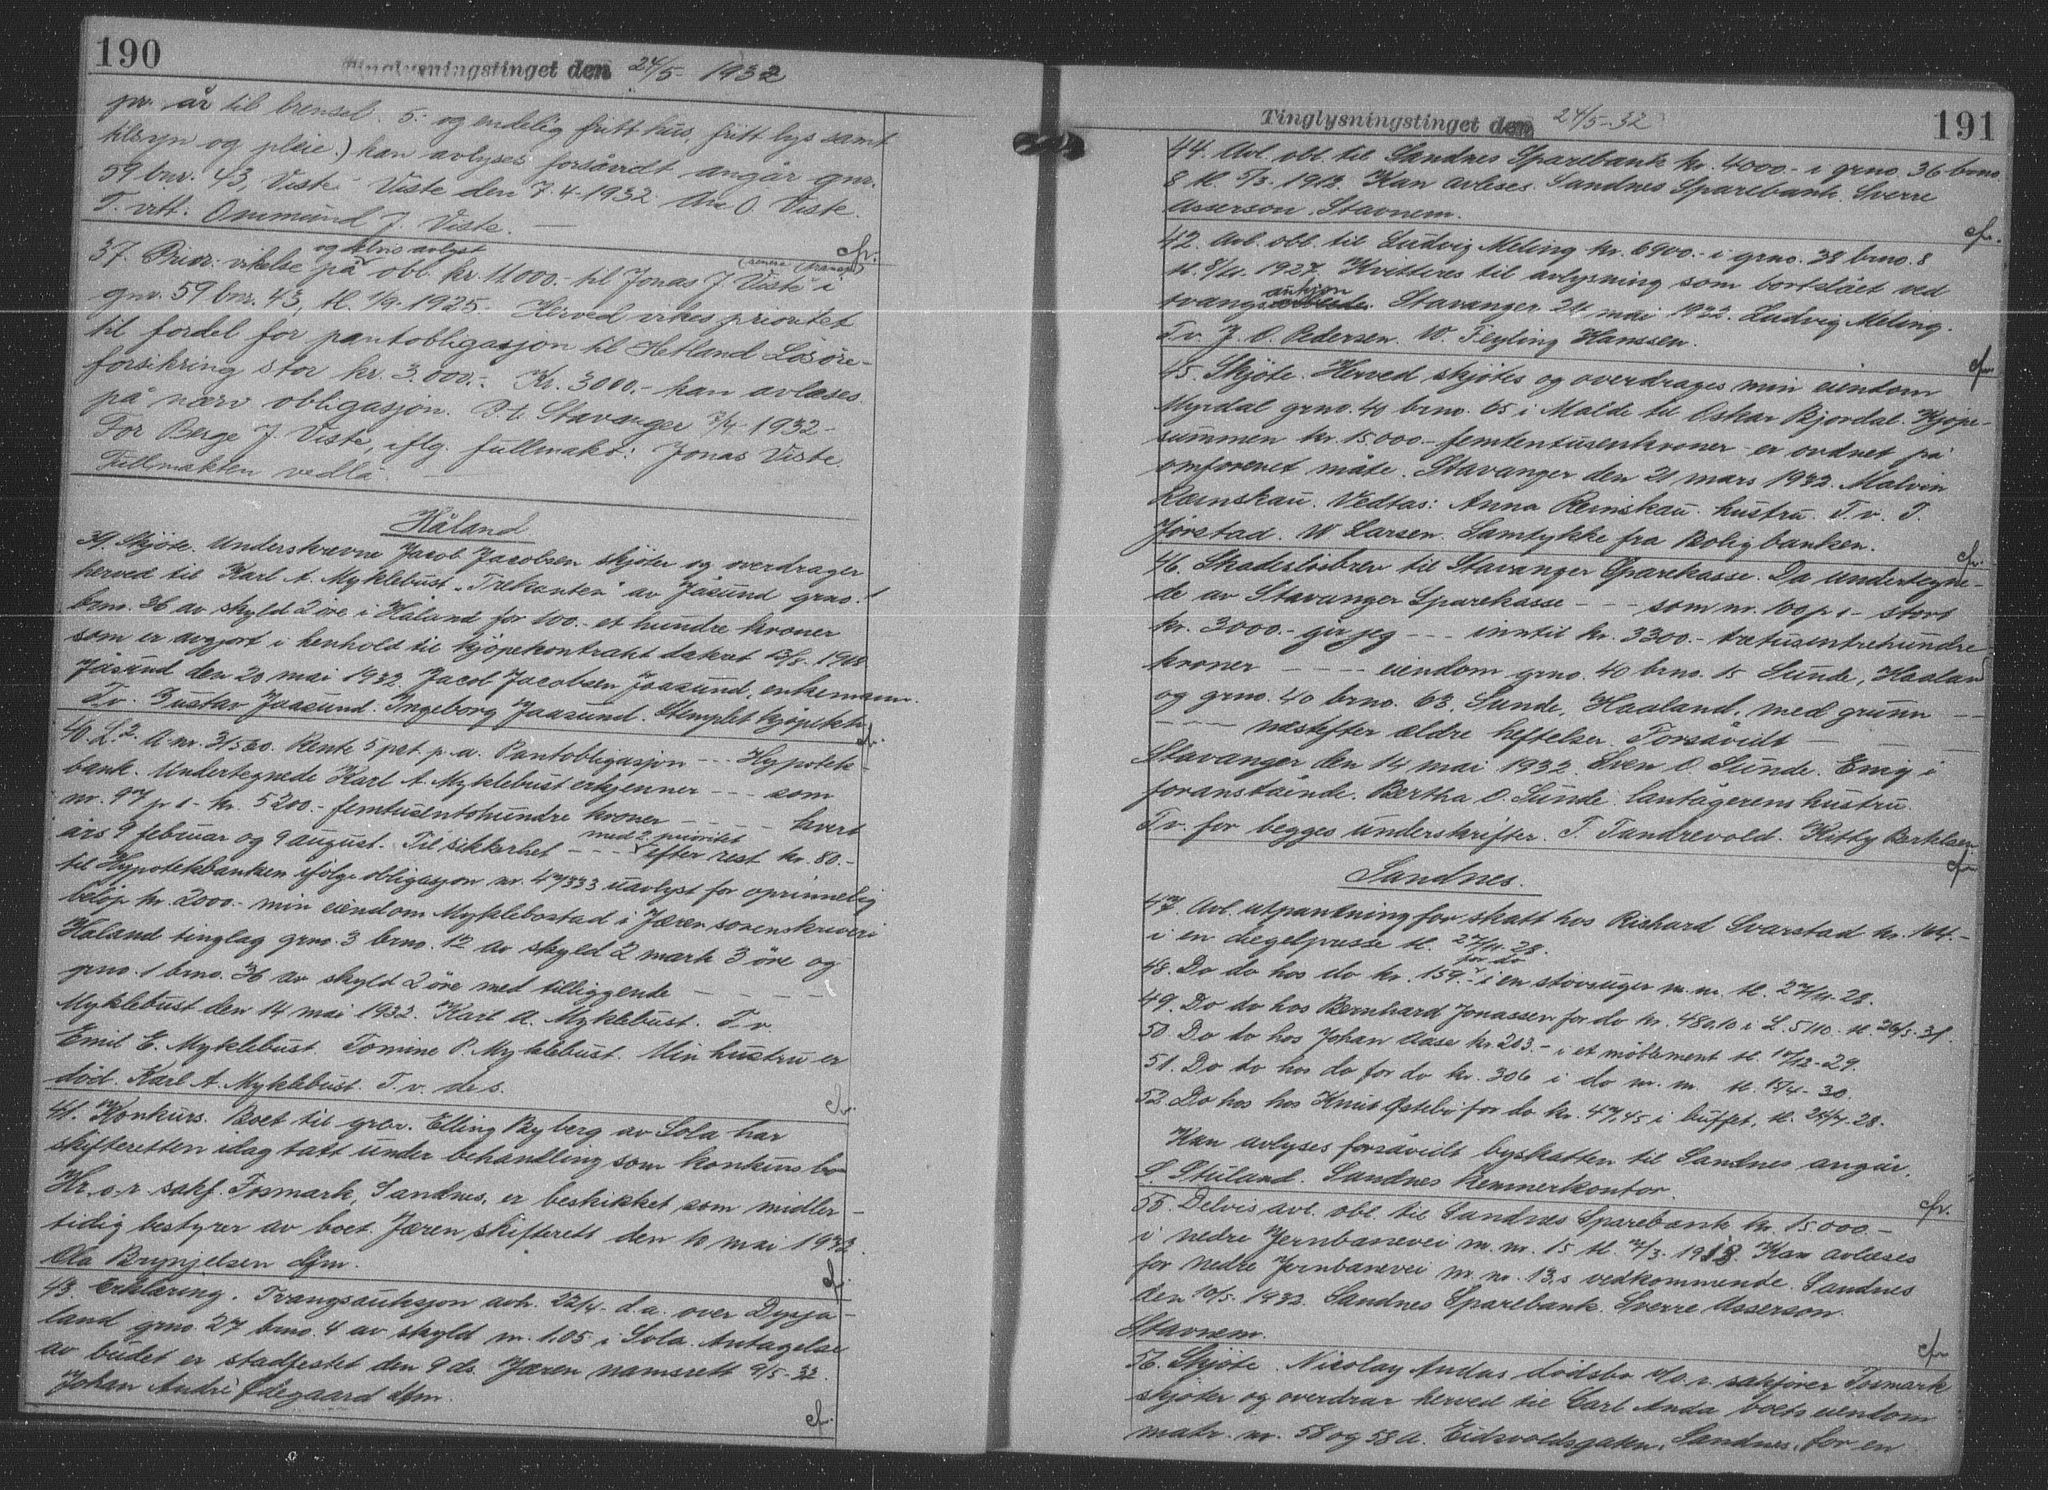 190
Tinglysningstinget den 24/5 - 1932
pr. år til brensel. 5: og endelig fritt hus, fritt lys samt
tilsyn og pleie.) kan avlyses forsåvidt angår gnr.
59 bnr. 43, Viste. Viste den 7.4-1932. O. Viste.
T. vitt: Ommund J. Viste. —
37. Prior. vikelse på og delvis avlyst obl. kr. 11.000.- til Jonas J. Viste (senere transp.) i
gnr. 59 bnr. 43, tl. 1/9-1925.- Herved vikes prioritet
til fordel for pantobligasjon til Hetland Lösöre-
forsikring stor kr. 3.000.-. Kr. 3000.- kan avlæses
på nærv. obligasjon. P.t. Stavanger 7/4-1932-
For Berge J. Viste, iflg. fullmakt: Jonas Viste.
Fullmakten vedlå.
Håland
39. Skjöte. Underskrevne Jacob Jacobsen skjöter og overdrager
herved til Karl A. Myklebust „Trekanten" av Jåsund grno. 1
brno. 36 av skyld 2 öre i Håland for 100.- et hundre kroner
som er avgjort i henhold til kjöpekontrakt datert 13/8-1918
Jåsund den 20 mai 1932. Jacob Jacobsen Jaasund, enkemann.
T.v. Gustav Jaasund. Ingeborg Jaasund. Stemplet kjöpektr.
40. L.2. A nr. 31560. Rente 5 pct. p.a. Pantobligasjon - - - Hypotek-
bank. Undertegnede Karl A. Myklebust erkjenner - - - som
nr. 97 p 1- kr. 5200.- femtusentohundre kroner - - - - hvert
års 9 februar og 9 august. Til sikkerhet - - - med 2. prioritet efter rest kr. 80.-
til Hypotekbanken ifölge obligasjon nr. 47333 uavlyst for oprinnelig
belöp kr. 2000.- min eiendom Myklebostad i Jæren sorenskriveri
Håland tinglag grno. 3 brno. 12 av skyld 2 mark 3 öre og
grno. 1 brno. 36 av skyld 2 öre med tilliggende - - - -
Myklebust den 14 mai 1932. Karl A. Myklebust. T.v.
Emil E. Myklebust. Tomine P. Myklebust. Min hustru er
död. Karl A. Myklebust. T.v. de s.
41. Konkurs. Boet til grer. Elling Byberg av Sola har
skifteretten idag tatt under behandling som konkursbo
Hr. o.r. sakf. Tosmark, Sandnes, er beskikket som midler-
tidig bestyrer av boet. Jæren skifterett den 10 mai 1932.
Ola Brynjelsen dfm.
43. Erklæring. Tvangsauksjon avh. 22/4- d.a. over Dysja-
land grno. 27 brno. 4 av skyld m. 1.05 i Sola. Antagelse
av budet er stadfestet den 9 ds. Jæren namsrett 9/5-32.
Johan André Ödegaard dfm.
191
Tinglysningstinget den 24/5-32
44. Avl. obl. til Sandnes Sparebank kr. 4000.- i grno. 36 brno.
8 tl. 5/3-1913. Kan avleses. Sandnes Sparebank. Sverre
Asserson. Stavnem.
42. Avl. obl. til Ludvig Meling kr. 6900.- i grno. 38 brno. 8
tl. 8/11.1927. Kvitteres til avlysning som bortslået ved
tvangsauksjon. Stavanger 24 mai 1932. Ludvig Meling.
T.v. J. O. Pedersen. W. Feyling Hanssen.
45. Skjöte. Herved skjötes og overdrages min eiendom
Myrdal grno. 40 brno. 65 i Malde til Oskar Bjordal. Kjöpe-
summen kr. 15.000.- femtentusenkroner - er ordnet på
omforenet måte. Stavanger den 21 mars 1932. Malvin
Reinskau. Vedtas: Anna Reinskau. hustru. T.v. T.
Jorstad. W Larsen. Samtykke fra Boligbanken.
46. Skadeslösbrev til Stavanger Sparekasse. Da undertegne-
de av Stavanger Sparekasse - - - som nr. 100 p 1 - stort
kr. 3000.- gir jeg - - - inntil kr. 3300.- tretusentrehundre
kroner - - - - eiendom grno. 40 brno. 15 Sunde, Haaland
og grno. 40 brno. 63 Sunde, Haaland, med grunn - -
- - - næstefter ældre heftelser. Forsåvidt - - - -
Stavanger den 14 mai 1932. Sven O. Sunde. Enig i
foranstående. Bertha O. Sunde. lantagerens hustru.
T.v. for begges underskrifter. T. Tandrevold. Kitty Bertelsen
Sandnes.
47. Avl. utpantning for skatt hos Rickard Svarstad kr. 104.-
i en diegelpresse tl. 27/11.28.
48. Do do hos do for do kr. 159.- i en stövsuger m.m. tl. 27/11.28.
49. Do do hos Bernhard Jonassen for do kr. 480.10 i L. 5110. tl. 26/5-31.
50. Do do hos Johan Aase kr. 203.- i et möblement tl. 17/12-29.
51. Do do hos do for do kr. 306 i do m.m. tl. 15/4-30.
52. Do hos hos Knut Östebö for do kr. 47,45 i buffet, tl. 25/4-28.
Kan avlyses forsåvidt byskatten til Sandnes angår.
S. Stuland. Sandnes Kemnerkontor.
55. Delvis avl. obl. til Sandnes Sparebank kr. 15.000.-
i nedre Jernbanevei m. nr. 15 tl. 7/3-1918. Kan avlæses
for nedre Jernbanevei m. nr. 13,s vedkommende. Sandnes
den 10/5-1932. Sandnes Sparebank. Sverre Asserson.
Stavnem.
56. Skjöte. Nicolay Andas dödsbo v/o.r. sakförer Tosmark
skjöter og overdrar herved til Carl Anda boets eiendom
matr. nr. 58 og 58 a. Eidsvoldsgaten, Sandnes, for en